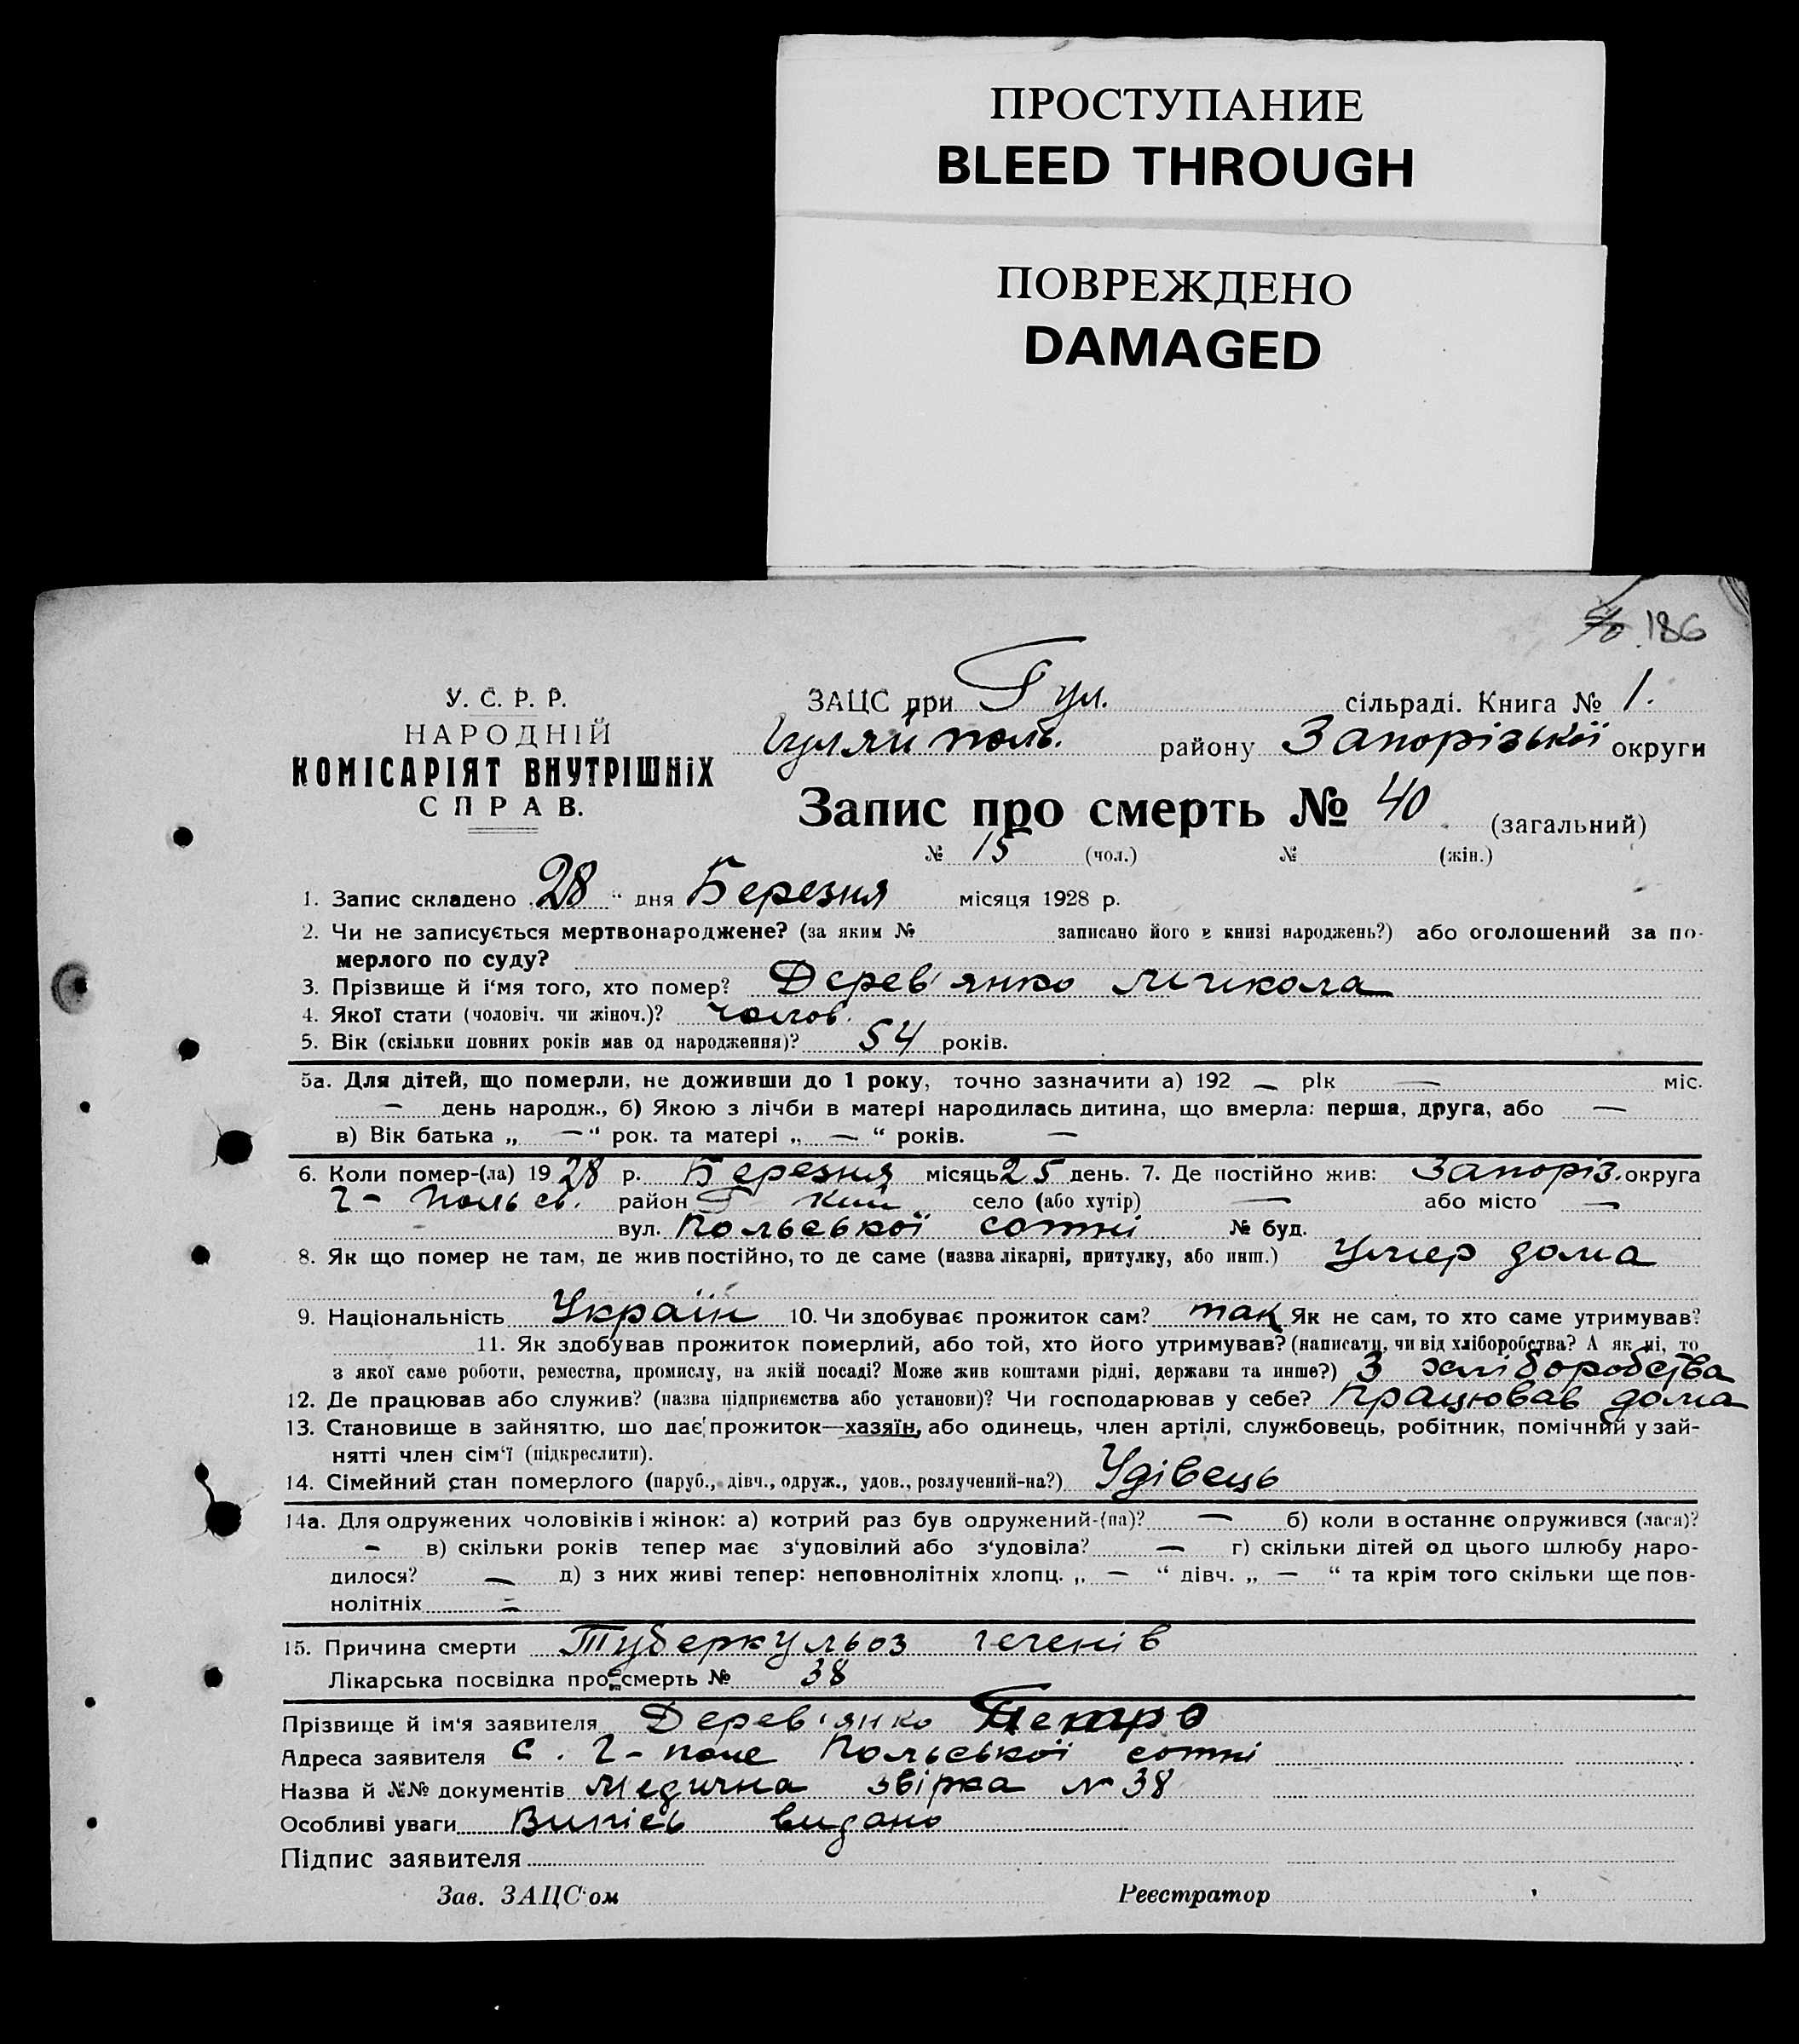 ПРОСТУПАНИЕ
BLEED THROUGH
ПОВРЕЖДЕНО
DAMAGED
186
У. С. Р. Р.
НАРОДНІЙ
КОМІСАРІЯТ ВНУТРІШНІХ
СПРАВ.
ЗАЦС при Гул. сільраді. Книга № 1.
Гуляйполь. району Запорізької округи
Запис про смерть № 40 (загальний)
№ 15 (чол.) № (жін.)
1. Запис складено „28“ дня Березня місяця 1928 р.
2. Чи не записується мертвонароджене? (за яким № записано його в книзі народжень?) або оголошений за по-
мерлого по суду?
3. Прізвище й і'мя того, хто помер? Дерев'янко Микола
4. Якої стати (чоловіч. чи жіноч.)? чолов.
5. Вік (скільки повних років мав од народження)? 54 років.
5а. Для дітей, що померли, не доживши до 1 року, точно зазначити а) 192 — рік — міс.
— день народж., б) Якою з лічби в матері народилась дитина, що вмерла: перша, друга, або —
в) Вік батька „ — “ рок. та матері „ — “ років. —
6. Коли помер-(ла) 1928 р. Березня місяць 25 день. 7. Де постійно жив: Запоріз. округа
Г-Польсь. район село (або хутір) — або місто —
вул. Польської сотні № буд.
8. Як що помер не там, де жив постійно, то де саме (назва лікарні, притулку, або инш.) Умер дома
9. Національність Україн 10. Чи здобуває прожиток сам? так Як не сам, то хто саме утримував?
11. Як здобував прожиток померлий, або той, хто його утримував? (написати, чи від хліборобства? А як ні, то
з якої саме роботи, ремества, промислу, на якій посаді? Може жив коштами рідні, держави та инше?) З хліборобства
12. Де працював або служив? (назва підприємства або установи)? Чи господарював у себе? Працював дома
13. Становище в зайняттю, що дає прожиток—хазяїн, або одинець, член артілі, службовець, робітник, помічний у зай-
нятті член сім'ї (підкреслити).
14. Сімейний стан померлого (паруб., дівч., одруж., удов., розлучений-на?) Удівець
14а. Для одружених чоловіків і жінок: а) котрий раз був одружений-(на)? — б) коли в останнє одружився (лася)?
— в) скільки років тепер має з'удовілий або з'удовіла? — г) скільки дітей од цього шлюбу наро-
дилося? — д) з них живі тепер: неповнолітніх хлопц. „ — “ дівч. „ — “ та крім того скільки ще пов-
нолітніх —
15. Причина смерти Туберкульоз легенів
Лікарська посвідка про смерть № 38
Прізвище й ім'я заявителя Дерев'янко Петро
Адреса заявителя с. Г-поле Польської сотні
Назва й №№ документів Медична звірка № 38
Особливі уваги Випісь видано
Підпис заявителя
Зав. ЗАЦС'ом Реєстратор